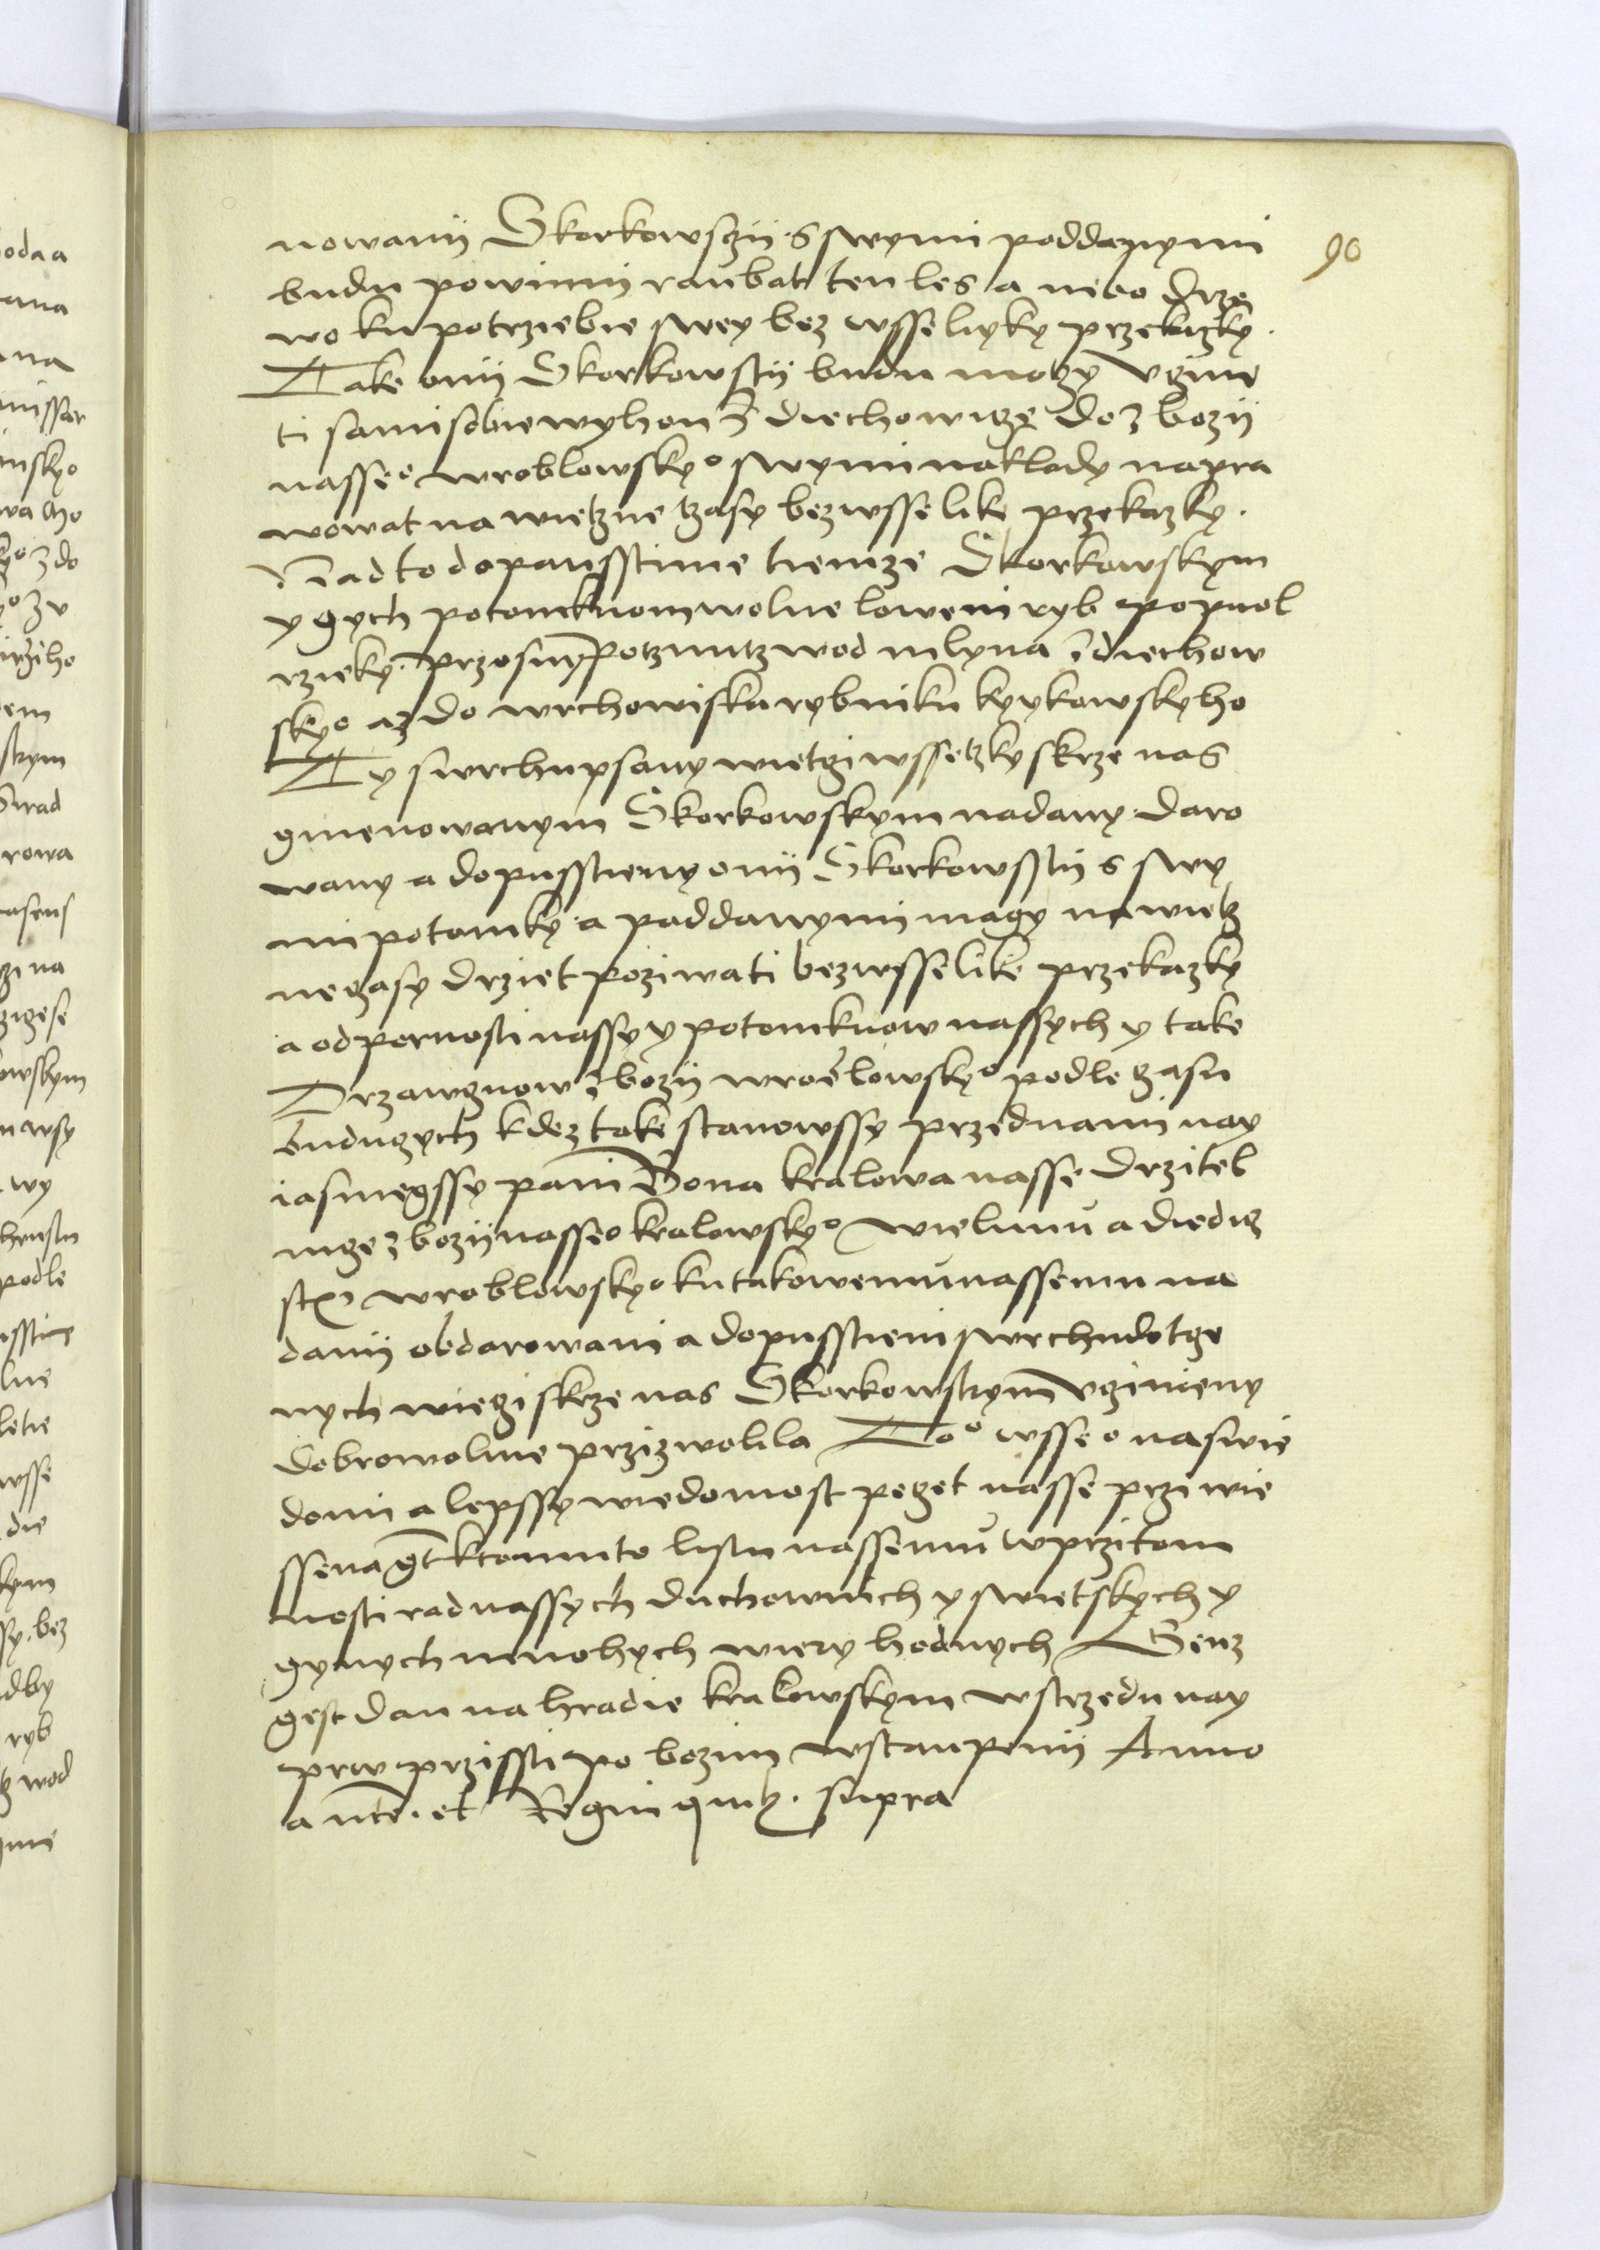 90
nowanij Skorkowsczij s swymi poddanymi
budu powinni raubat ten les a nebo drze
wo ku potrziebie swey bez wsseliyky przekazky.
Take onij Skorkowstij budu moczy vgine
ti sami sobie wyhon z diechowicze do zbozij
nasseo wroblowskyo swymi naklady napra
wowat na wietzne tzasy bez wsselike przekazky.
Nad to dopausstime tiemze Skorkowskym
y gych potomkuom wolne loweni ryb po puol
rzieky. potznutz wod mlyna diechow
skyo az do wrchowiska rybniku kyykowskyho
Ty swrchupsany wietzi wssetzky skrze nas
gmenowanym Skorkowskym nadany daro
wany a dopusstieny onij Skorkowsstij s swy
mi potomky a poddanymi magy na wietz
ne czasy drziet poziwati bez wsselike przekazky
a odpornosti nassy y potomkuow nassych y take
Drzawguow zbozij wroblowskyo podle czasu
buduczych kdez take stanowssy przed nami nay
iasniegssy pani Bona kralowa nasse drzitel
nicze zbozij nasseo kralowskyo wielunu a diedicz
stwi wroblowskyo ku takowemu nassemu na
danij obdarowani a dopusstieni swrchudotcze
nych wieczi skrze nas Skorkowskym vczinieny
dobrowolnie przizwolila Too wsseo na swie
domi a lepssy wiedomost peczet nasse przi wie
ssena gt k tomuto listu nassemu w przitom
nosti rad nassych duchownich y swietskych y
gynych mnohych wiery hodnych Genz
gest dan na hradie kralowskym w strzedu nay
prw przissti po bozim wstaupenij Anno
a nte. et Regni quib. supra